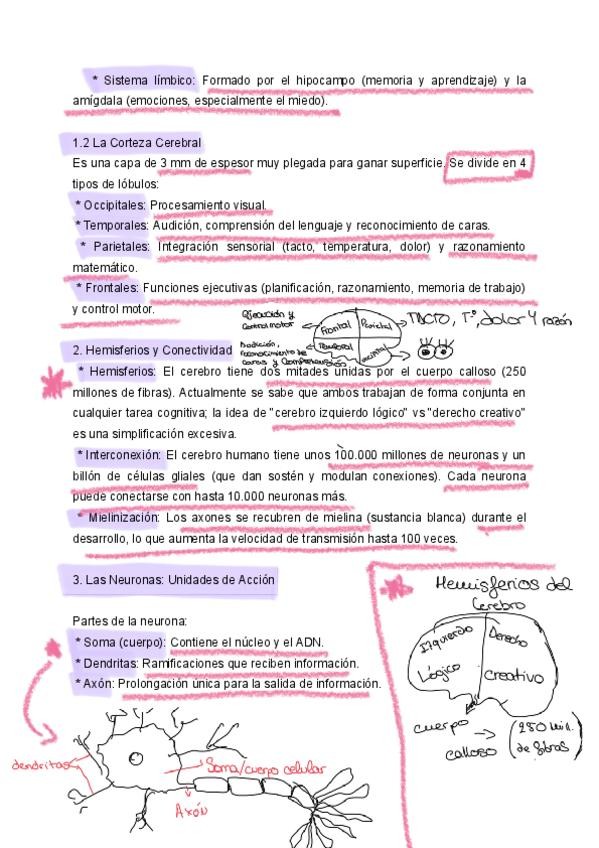 * Sistema límbico: Formado por el hipocampo (memoria y aprendizaje) y la
amígdala (emociones, especialmente el miedo).
1.2 La Corteza Cerebral
Es una capa de 3 mm de espesor muy plegada para ganar superficie. Se divide en 4
tipos de lóbulos:
* Occipitales: Procesamiento visual.
* Temporales: Audición, comprensión del lenguaje y reconocimiento de caras.
* Parietales: Integración sensorial (tacto, temperatura, dolor) y razonamiento
matemático.
* Frontales: Funciones ejecutivas (planificación, razonamiento, memoria de trabajo)
y control motor.
Ejecución y
Control motor
Frontal
Parietal
TACTO, Tº, dolor y razón
Temporal
Audición,
reconocimiento de
caras y comprensión
2. Hemisferios y Conectividad
* Hemisferios: El cerebro tiene dos mitades unidas por el cuerpo calloso (250
millones de fibras). Actualmente se sabe que ambos trabajan de forma conjunta en
cualquier tarea cognitiva; la idea de "cerebro izquierdo lógico" vs "derecho creativo"
es una simplificación excesiva.
* Interconexión: El cerebro humano tiene unos 100.000 millones de neuronas y un
billón de células gliales (que dan sostén y modulan conexiones). Cada neurona
puede conectarse con hasta 10.000 neuronas más.
* Mielinización: Los axones se recubren de mielina (sustancia blanca) durante el
desarrollo, lo que aumenta la velocidad de transmisión hasta 100 veces.
3. Las Neuronas: Unidades de Acción
Partes de la neurona:
* Soma (cuerpo): Contiene el núcleo y el ADN.
* Dendritas: Ramificaciones que reciben información.
* Axón: Prolongación única para la salida de información.
dendritas
Soma/cuerpo celular
Axón
Hemisferios del
Cerebro
Izquierdo
Derecho
Lógico
creativo
cuerpo
calloso
(250 mill.
de fibras)